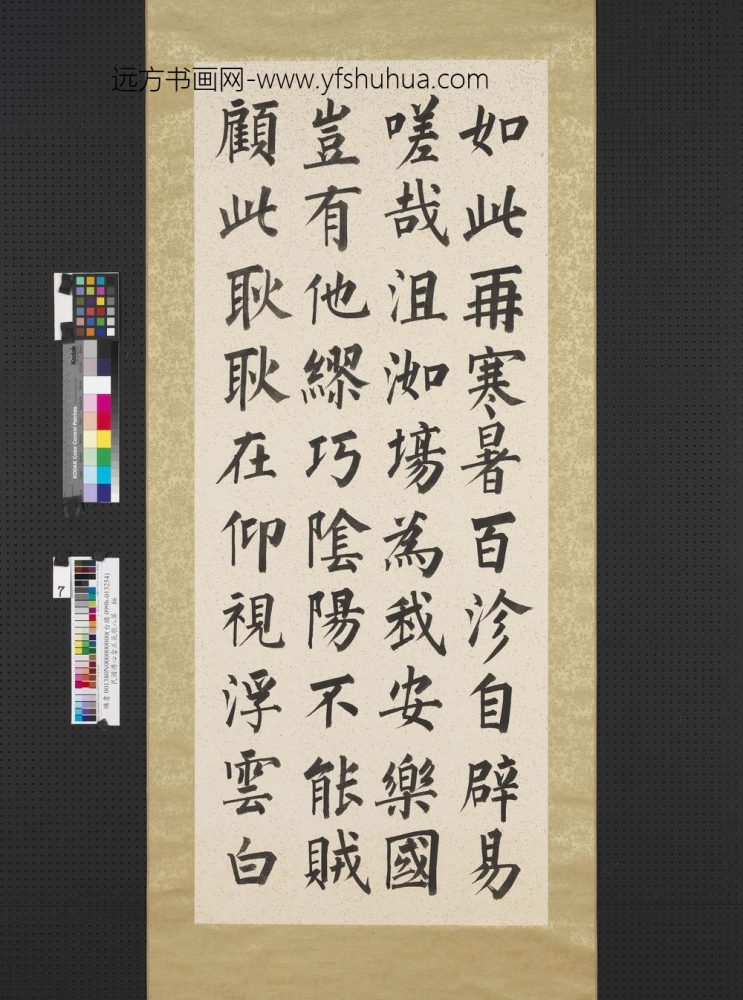 远方书画网-www.yfshuhua.com
如此再寒暑百沴自辟易
嗟哉沮洳場為我安樂國
豈有他繆巧陰陽不能賊
顧此耿耿在仰視浮雲白
Kodak
KODAK Color Control Patches
7